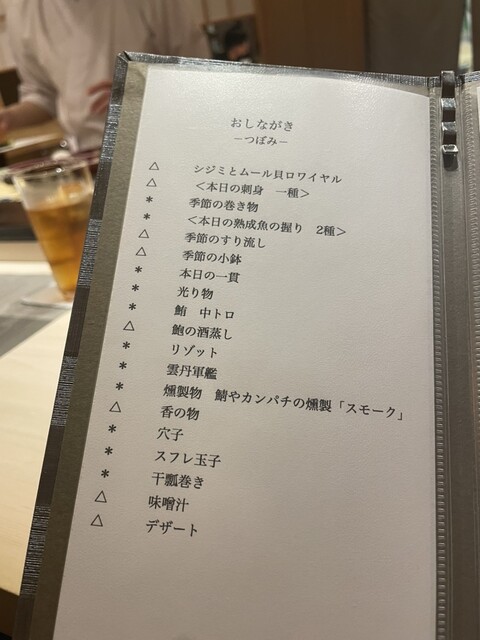 おしながき
－つぼみ－
△ シジミとムール貝ロワイヤル
△ ＜本日の刺身 一種＞
＊ 季節の巻き物
＊ ＜本日の熟成魚の握り 2種＞
△ 季節のすり流し
△ 季節の小鉢
＊ 本日の一貫
＊ 光り物
＊ 鮪 中トロ
△ 鮑の酒蒸し
＊ リゾット
＊ 雲丹軍艦
＊ 燻製物 鯖やカンパチの燻製「スモーク」
△ 香の物
＊ 穴子
＊ スフレ玉子
＊ 干瓢巻き
△ 味噌汁
△ デザート